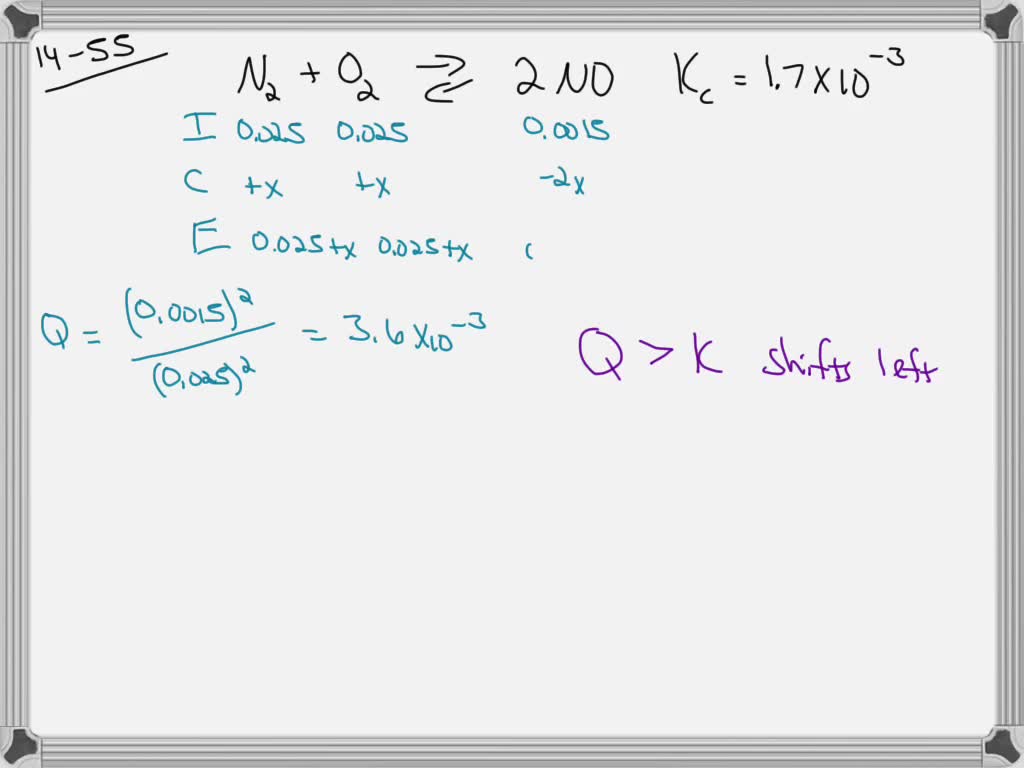 14-55
N₂ + O₂ ⇄ 2 NO K_c = 1.7 x 10⁻³
I 0.025 0.025 0.0015
C +x +x -2x
E 0.025+x 0.025+x (
Q = (0.0015)² / (0.025)² = 3.6 x 10⁻³
Q > K shifts left